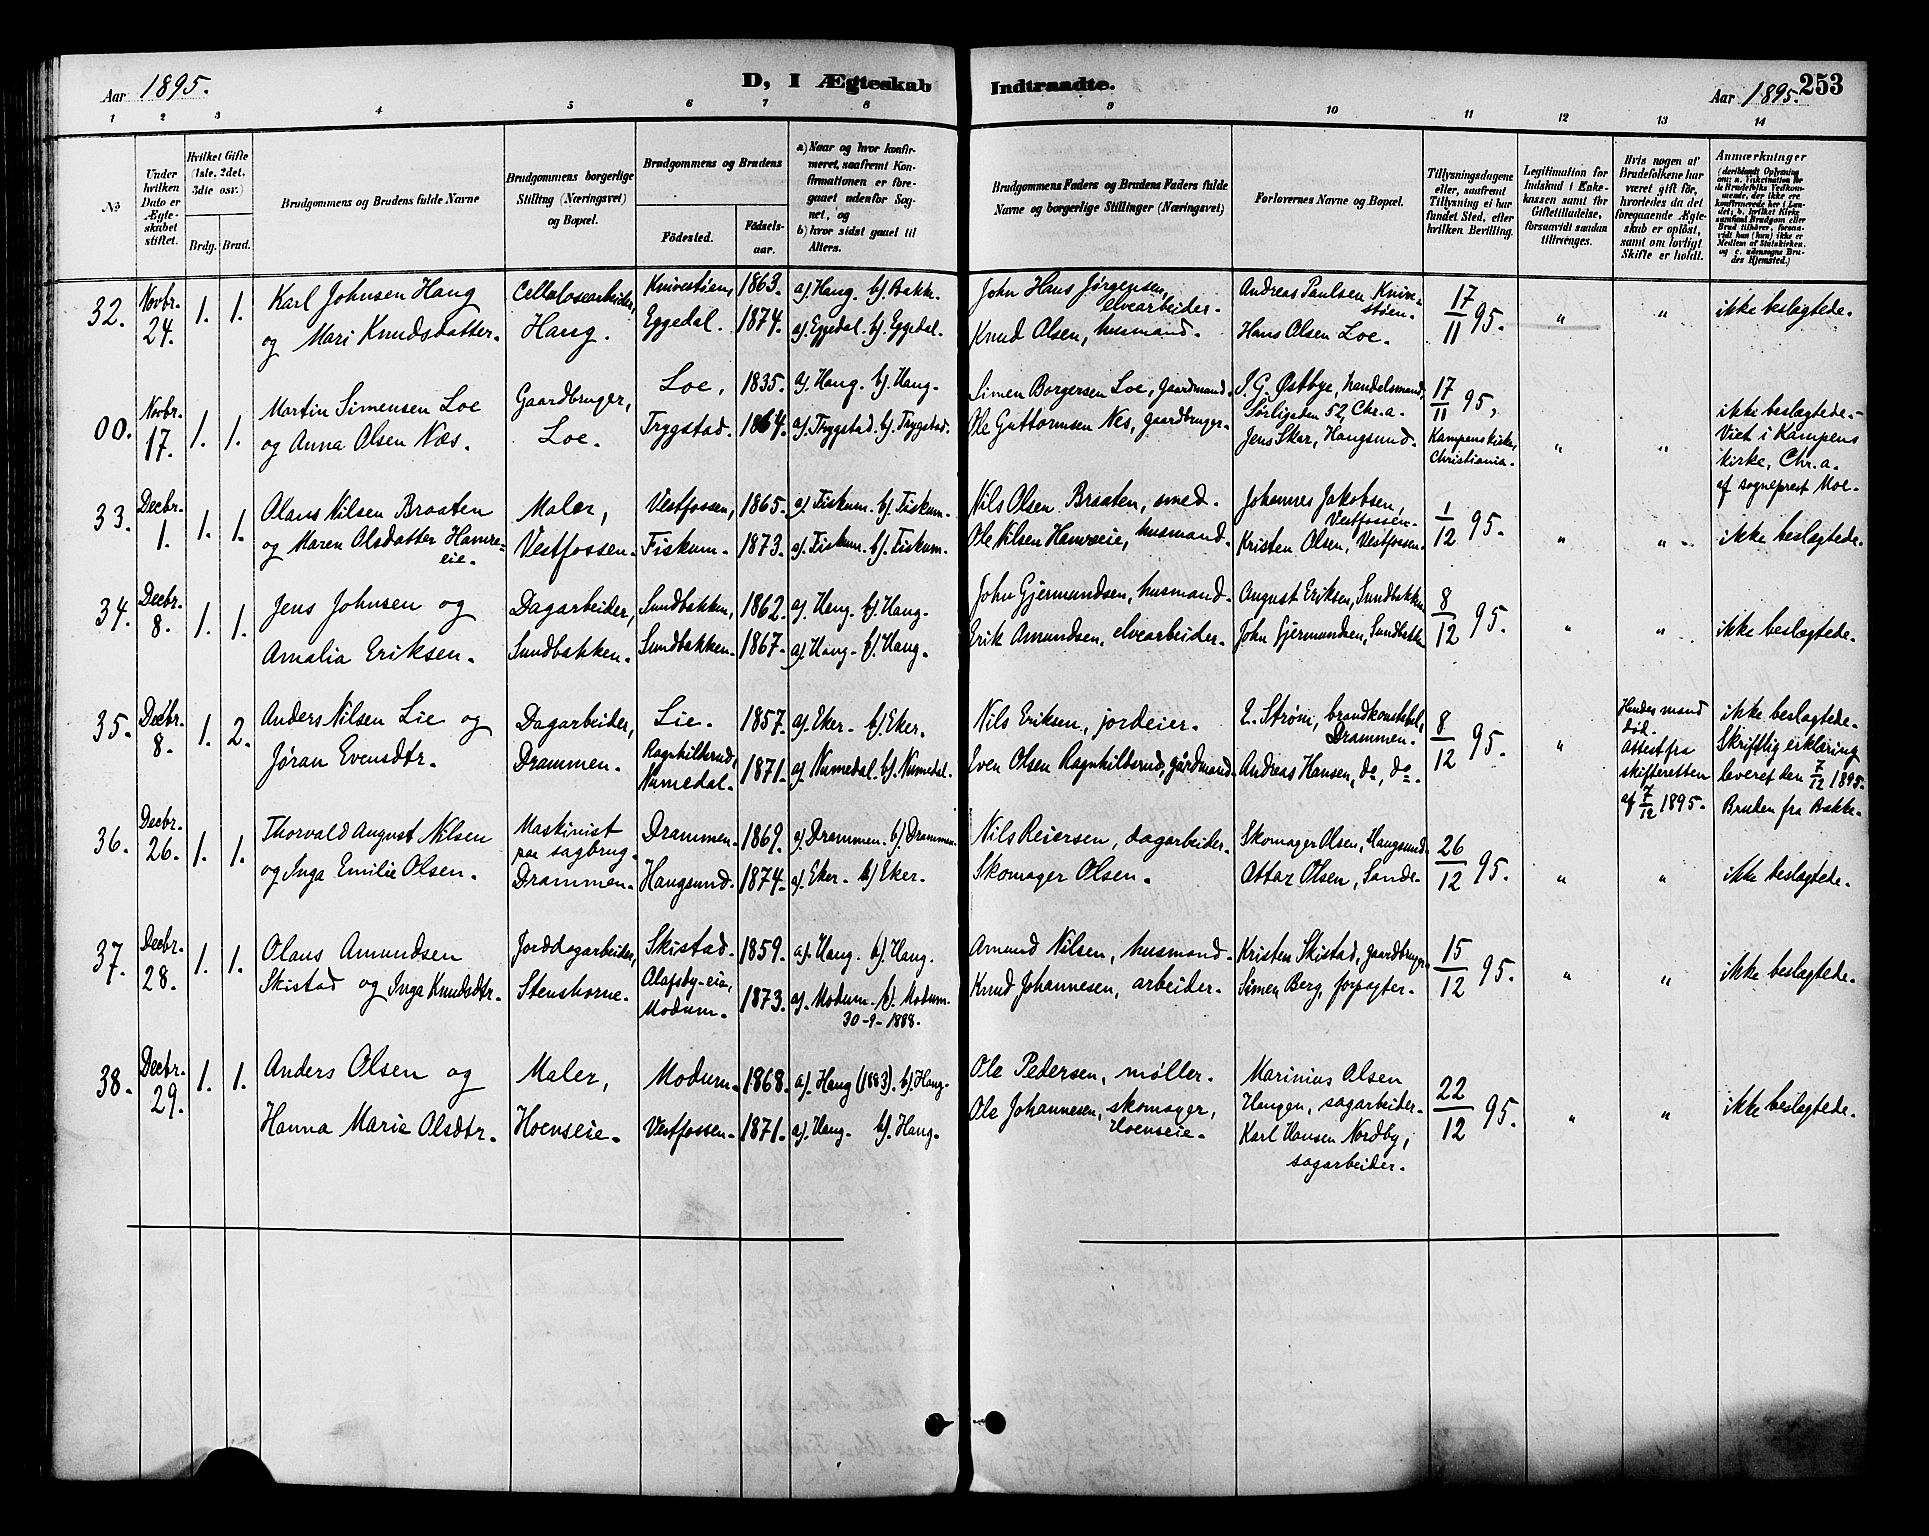 Aar 1895.
D, I Ægteskab Indtraadte.
Aar 1895. 253
1 2 3 4 5 6 7 8 9 10 11 12 13 14
№
Under hvilken Dato er Ægteskabet stiftet.
Hvilket Gifte (1ste, 2det, 3die osv.)
Brdg. Brud.
Brudgommens og Brudens fulde Navne
Brudgommens borgerlige Stilling (Næringsvei) og Bopæl.
Brudgommens og Brudens
Födested.
Födselsaar.
a) Naar og hvor konfirmeret, saafremt Konfirmationen er foregaaet udenfor Sognet, og
b) hvor sidst gaaet til Alters.
Brudgommens Faders og Brudens Faders fulde Navne og borgerlige Stillinger (Næringsvei)
Forlovernes Navne og Bopæl.
Tillysningsdagene eller, saafremt Tillysning ei har fundet Sted, efter hvilken Bevilling.
Legitimation for Indskud i Enkekassen samt for Giftetilladelse, forsaavidt saadan tiltrænges.
Hvis nogen af Brudefolkene har været gift för, hvorledes da det foregaaende Ægteskab er oplöst, samt om lovligt Skifte er holdt.
Anmærkninger
32. Novbr. 24. 1. 1.
Karl Johnsen Haug
og Mari Knudsdatter.
Cellulosearbeider,
Haug.
Knivestøen, 1863. a). Haug. b). Bakke.
Eggedal. 1874. a). Eggedal. b). Eggedal.
John Hans Jørgensen, elvearbeider.
Knud Olsen, husmand.
Andreas Paulsen Knivestöen.
Hans Olsen Loe.
17/11 95. " "
ikke beslægtede.
00. Novbr. 17. 1. 1.
Martin Simensen Loe
og Anna Olsen Næs.
Gaardbruger,
Loe.
Loe, 1835. a). Haug. b). Haug.
Trygstad. 1864. a). Trygstad. b). Trygstad.
Simen Borgersen Loe, gaardmand.
Ole Guttormsen Nes, gaardbruger.
S. G. Østbye, handelsmand,
Sørligaten 52, Chr.a.
Jens Skar, Haugsund.
17/11 95,
Kampens kirke,
Christiania. " "
ikke beslægtede.-
Viet i Kampens
kirke, Chr.a.
af sogneprest Moe.
33. Decbr. 1. 1. 1.
Olaus Nilsen Braaten
og Maren Olsdatter Hamreeie.
Maler,
Vestfossen.
Vestfossen, 1865. a). Fiskum. b). Fiskum.
Fiskum. 1873. a). Fiskum. b). Fiskum.
Nils Olsen Braaten, smed.
Ole Nilsen Hamreeie, husmand.
Johannes Jakobsen, Vestfossen.
Kristen Olsen, Vestfossen.
1/12 95. " "
ikke beslægtede.
34. Decbr. 8. 1. 1.
Jens Johnsen og
Amalia Eriksen.
Dagarbeider,
Sundbakken.
Sundbakken, 1862. a). Haug. b). Haug.
Sundbakken. 1867. a). Haug. b). Haug.
John Gjermundsen, husmand.
Erik Amundsen, elvearbeider.
August Eriksen, Sundbakken
John Gjermundsen, Sundbakk
8/12 95. " "
ikke beslægtede.
35. Decbr. 8. 1. 2.
Anders Nilsen Lie og
Jøran Evensdtr.
Dagarbeider,
Drammen.
Lie. 1857. a). Eker. b). Eker.
Ragnhildsrud,
Numedal. 1871. a). Numedal. b). Numedal.
Nils Eriksen, jordeier.
Even Olsen Ragnhildsrud, gårdmand.
E. Strøm, brandkonstabel, Drammen.
Andreas Hansen, do, do.
8/12 95. "
Hendes mand
død.
Attest fra
skifteretten
af 7/12 1895.
ikke beslægtede.
Skriftlig erklæring
leveret den 7/12 1895.
Bruden fra Bakke.
36. Decbr. 26. 1. 1.
Thorvald August Nilsen
og Inga Emilie Olsen.
Maskinist
paa sagbrug.
Drammen.
Drammen. 1869. a). Drammen. b). Drammen.
Haugsund. 1874. a). Eker. b) Eker.
Nils Reiersen, dagarbeider.
Skomager Olsen.
Skomager Olsen, Haugsund.
Ottar Olsen, Sande.
26/12 95. " "
ikke beslægtede.
37. Decbr. 28. 1. 1.
Olaus Amundsen
Skistad og Inga Knudsdtr.
Jorddagarbeider,
Stenshorne.
Skistad. 1859. a). Haug. b). Haug.
Olafsby-eie,
Modum. 1873. a). Modum. b). Modum.
30-9-1888.
Amund Nilsen, husmand.
Knud Johannesen, arbeider.
Kristen Skistad, gaardbruger.
Simen Berg, forpagter.
15/12 95. " "
ikke beslægtede.
38. Decbr. 29. 1. 1.
Anders Olsen og
Hanna Marie Olsdtr.
Maler,
Hoenseie.
Modum. 1868. a). Haug (1883). b). Haug.
Vestfossen. 1871. a). Haug. b). Haug.
Ole Pedersen, møller.
Ole Johannesen, skomager, Hoenseie.
Marinius Olsen
Haugen, sagarbeider.
Karl Hansen Nordby,
sagarbeider.
22/12 95. " "
ikke beslægtede.